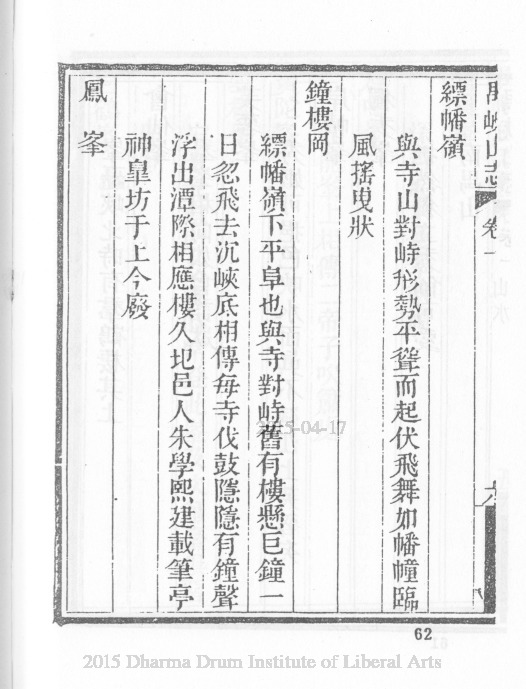 山志 卷一
縹幡嶺
與寺山對峙形勢平聳而起伏飛舞如幡幢臨
風搖曳狀
鐘樓岡
縹幡嶺下平阜也與寺對峙舊有樓懸巨鐘一
日忽飛去沉峽底相傳每寺伐鼓隱隱有鐘聲
浮出潭際相應樓久圮邑人朱學熙建載筆亭
神皐坊于上今廢
鳳峯
2015-04-17
62
2015 Dharma Drum Institute of Liberal Arts